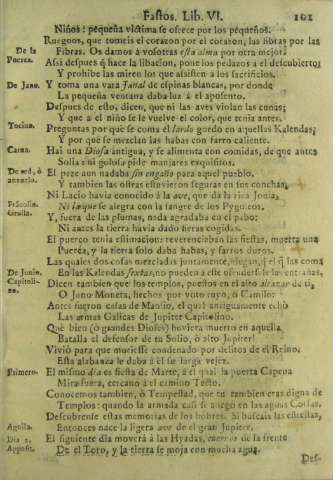 Fastos. Lib. VI. 101
Niños: pequeña victima se ofrece por los pequeños.
Ruegoos, que tomeis el corazon por el corazon, las fibras por las
Fibras. Os damos à vosotras esta alma por otra mejor.
De la Puerca.
Assi despues q̃ hace la libacion, pone los pedazos a el descubierto
Y prohibe las miren los que assisten à los sacrificios.
De Jano.
Y toma una vara Janal de espinas blancas, por donde
La pequeña ventana daba luz à el aposento.
Despues de esto, dicen, que ni las aves violan las cunas;
Y que a el niño se le vuelve el color, que tenia antes.
Tocino.
Preguntas por què se coma el lardo gordo en aquellas Kalendas;
Y por què se mezclan las habas con farro caliente.
Carna.
Hai una Diosa antigua, y se alimenta con comidas, de que antes
Solia: ni golosa pide manjares exquisitos.
De red, ò anzuelo.
El peze aun nadaba sin engaño para aquel pueblo.
Y tambien las ostras estuvieron seguras en sus conchas.
Ni Lacio havia conocido à la ave, que dà la rica Jonia,
Grulla.
Ni la que se alegra con la sangre de los Pygmeos.
Y, fuera de las plumas, nada agradaba en el pabo:
Ni antes la tierra havia dado fieras cogidas.
El puerco tenia estimacion: reverenciaban las fiestas, muerta una
Puerca, y la tierra solo daba habas, y farros duros.
Las quales dos cosas mezcladas juntamente, q̃ las coma
De Junio.
En las Kalendas sextas, no pueden à este ofenderse le las entrañas.
Capitolino.
Dicen tambien que los templos, puestos en el alto alcazar de ti,
O Juno Moneta, hechos por voto tuyo, ò Camilo:
Antes fueron casas de Manlio, el qual antiguamente echò
Las armas Galicas de Jupiter Capitolino.
Què bien (ò grandes Dioses) huviera muerto en aquella
Batalla el defensor de tu Solio, ò alto Jupiter!
Vivió para que muriesse condenado por delitos de el Reino.
Esta alabanza le daba à él su larga vejez.
Primero.
El mismo dia es fiesta de Marte, à el qual la puerta Capena
Mira fuera, cercano à el camino Tecto.
Conocemos tambien, ò Tempestad, que tu tambien eras digna de
Templos: quando la armada casi se anegò en las aguas Corsas.
Descubrense estas memorias de los hombres. Si buscais las estrellas,
Aguila.
Entonces nace la ligera ave de el gran Jupiter.
Dia 2.
El siguiente dia moverà à las Hyadas, cuernos de la frente
De el Toro, y la tierra se moja con mucha agua.
Des-